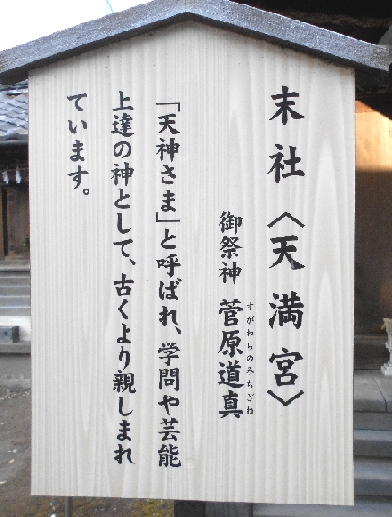 末社〈天満宮〉
御祭神 菅原道真
すがわらのみちざね
「天神さま」と呼ばれ、学問や芸能
上達の神として、古くより親しまれ
ています。